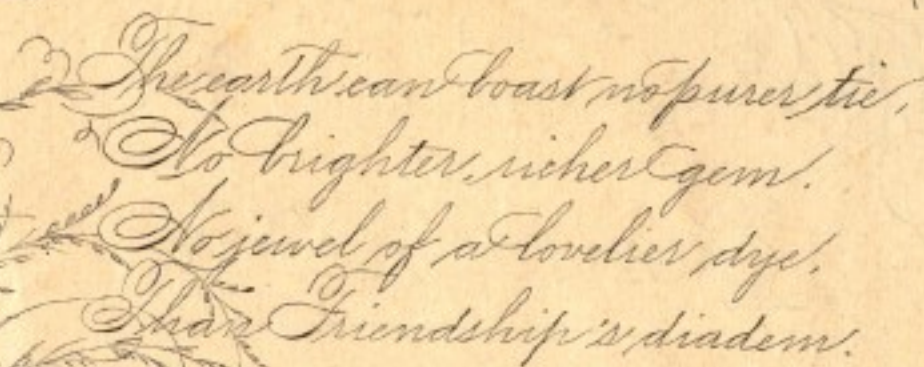 The earth can boast no purer tie,
No brighter, richer gem.
No jewel of a lovelier dye,
Than Friendship's diadem.